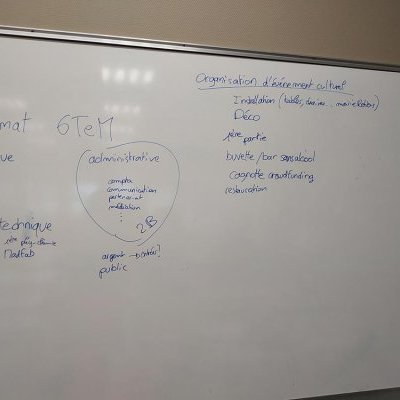 mat 6TeM
ve
administrative
compta
communication
partenariat
médiation
2B
technique
Madfab
argent → entrées?
public
Organisation d'événement culturel
Installation (tables, chaises,
Déco
1ère partie
buvette/bar sans alcool
Cagnotte crowdfunding
restauration